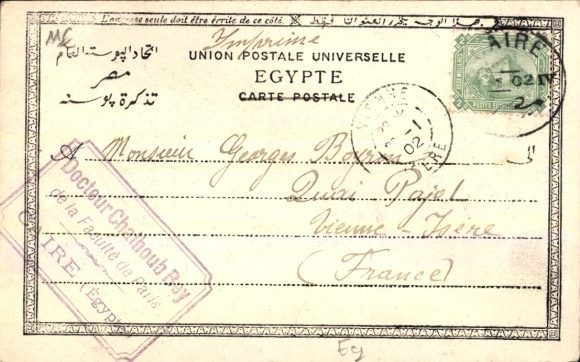 L'adresse seule doit être écrite de ce côté.
MC
Imprimé
اتحاد البوسته العام
مصر
تذكرة بوسته
UNION POSTALE UNIVERSELLE
EGYPTE
CARTE POSTALE
CAIRE
02 IV
2
VIENNE
02
ISERE
A Monsieur Georges
Quai Pajol
Vienne - Isère
(France)
Docteur Chalhoub Bey
de la Faculté de Paris
CAIRE (Égypte)
Eg